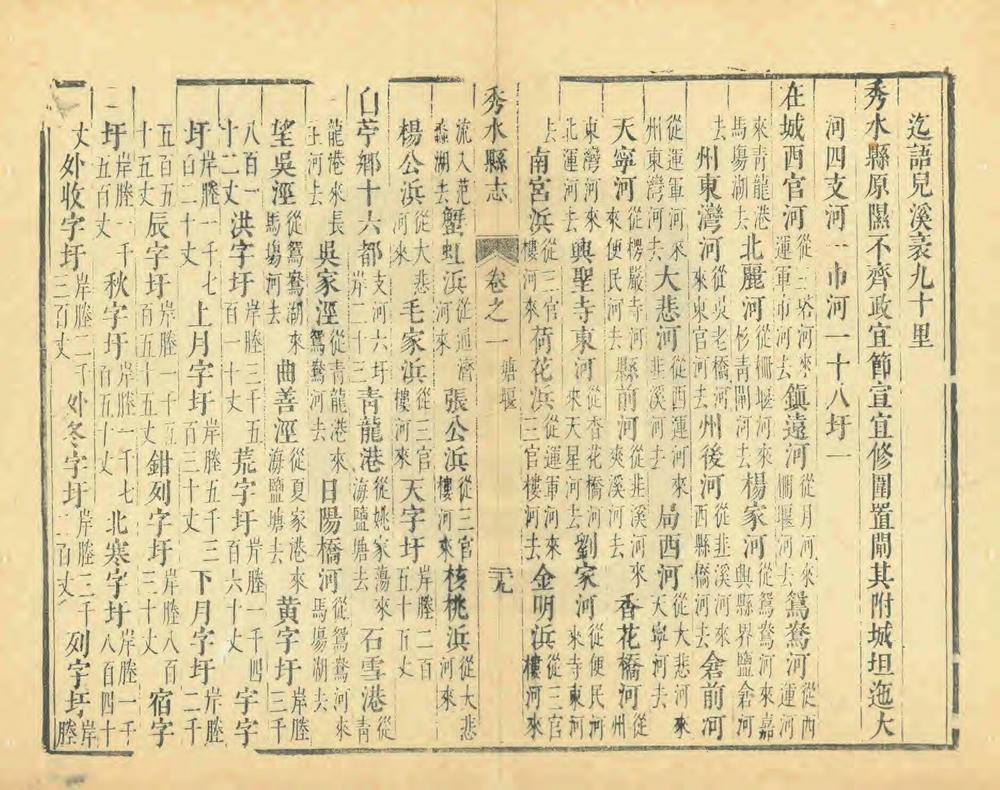 迄語兒溪袤九十里
秀水縣原隰不齊政宜節宣宜修圍置閘其附城坦迤大
河四支河一市河一十八圩一
在城西官河從三塔河來運軍市河去鎮遠河從月河來柵堰河去鴛鴦河從西運河
來青龍港馬塲湖去北麗河從柵堰河來杉青閘河去楊家河從鴛鴦河來嘉興縣界鹽倉河
去州東灣河從吳老橋河來東官河去州後河從韭溪河來西縣橋河去倉前河
從運軍河來州東灣河去大悲河從西運河來韭溪河去局西河從大悲河來天寧河去
天寧河從楞嚴寺河來便民河去縣前河從韭溪河來爽溪河去香花橋河從州
東灣河來北運河去興聖寺東河從杳花橋河來天星河去劉家河從便民河來寺東河
去南宮浜從三官樓河來荷花浜從運軍河來三官樓河去金明浜從三官樓河來
秀水縣志 卷之一 塘堰 二十九
流入范蠡湖去蟹虹浜從通濟河來張公浜從三官樓河來核桃浜從大悲河來
楊公浜從大悲河來毛家浜從三官樓河來天字圩岸塍二百五十五丈
白苧鄉十六都支河六圩岸二十三青龍港從姚家蕩來海鹽塘去石雪港從青
龍港來長王河去吳家涇從青龍港來鴛鴦河去日陽橋河從鴛鴦河來馬塲湖去
望吳涇從鴛鴦湖來馬塲河去曲善涇從夏家港來海鹽塘去黃字圩岸塍三千
八百一十二丈洪字圩岸塍三千五百一十丈荒字圩岸塍一千四百六十丈宇字
圩岸塍一千七百二十丈上月字圩岸塍五千三百三十丈下月字圩岸塍二千
五百五十五丈辰字圩岸塍一千五百五十五丈鉗列字圩岸塍八百三十丈宿字
圩岸塍一千五百丈秋字圩岸塍一千七百五十丈北寒字圩岸塍一千八百四十
丈外收字圩岸塍二千三百丈外冬字圩岸塍三千二百丈列字圩岸塍